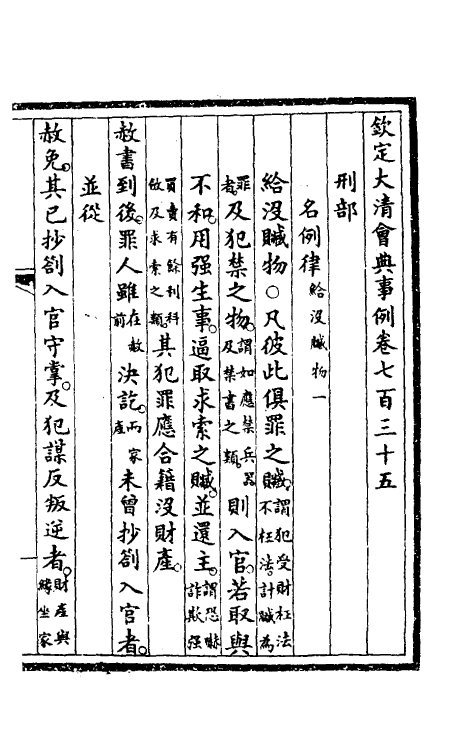 欽定大清會典事例卷七百三十五
刑部
名例律給沒贓物一
給沒贓物○凡彼此俱罪之贓。謂犯受財枉法不枉法。計贓為
罪者。及犯禁之物。謂如應禁兵器及禁書之類。則入官。若取與
不和。用强生事。逼取求索之贓。並還主。謂恐嚇詐欺强
買賣有餘利科斂及求索之類。其犯罪應合籍沒財產。
赦書到後。罪人雖在赦前決訖。而家產未曾抄劄入官者。
並從
赦免。其已抄劄入官守掌。及犯謀反叛逆者。財產與緣坐家